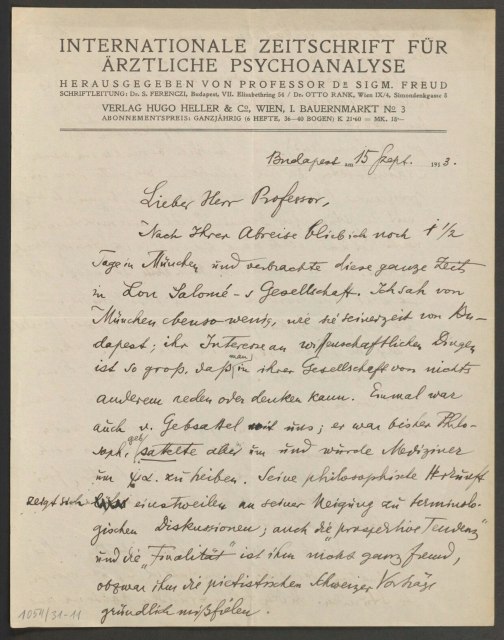 INTERNATIONALE ZEITSCHRIFT FÜR
ÄRZTLICHE PSYCHOANALYSE
HERAUSGEGEBEN VON PROFESSOR DR SIGM. FREUD
SCHRIFTLEITUNG: Dr. S. FERENCZI, Budapest, VII. Elisabethring 54 / Dr. OTTO RANK, Wien IX/4, Simondenkgasse 8
VERLAG HUGO HELLER & Co, WIEN, I. BAUERNMARKT No 3
ABONNEMENTSPREIS: GANZJÄHRIG (6 HEFTE, 36—40 BOGEN) K 21·60 = MK. 18·—
Budapest am 15 Sept. 1913.
Lieber Herr Professor,
Nach Ihrer Abreise blieb ich noch 1 1/2
Tage in München und verbrachte diese ganze Zeit
in Lou Salomé-s Gesellschaft. Ich sah von
München ebenso wenig, wie sie seinerzeit von Bu-
dapest; ihr Interesse an wissenschaftlichen Dingen
ist so groß, daß man in ihrer Gesellschaft von nichts
anderem reden oder denken kann. Einmal war
auch v. Gebsattel mit uns; er war bisher Philo-
soph, sattelte aber um und wurde Mediziner
um ψα. zu treiben. Seine philosophische Herkunft
zeigt sich einstweilen an seiner Neigung zu terminolo-
gischen Diskussionen; auch die „prospektive Tendenz"
und die „Finalität" ist ihm nicht ganz fremd,
obzwar ihm die pietistischen Schweizer Vorträge
gründlich mißfielen.
1054/31-11